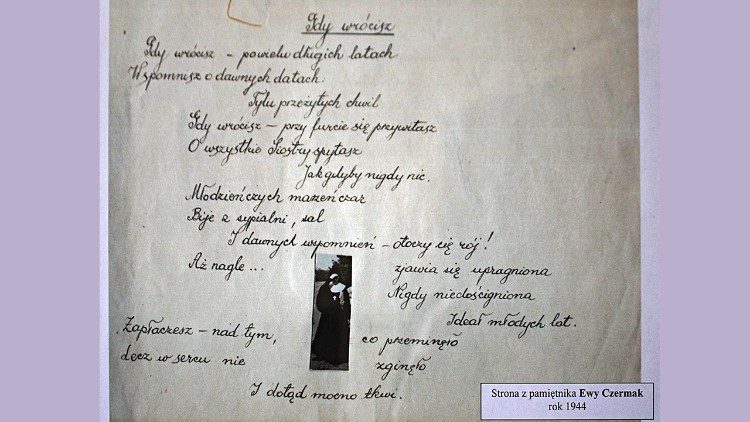 Gdy wrócisz
Gdy wrócisz – po wielu długich latach
Wspomnisz o dawnych datach:
Tylu przeżytych chwil
Gdy wrócisz – przy furcie się przywitasz
O wszystkie Siostry spytasz
Jak gdyby nigdy nic.
Młodzieńczych marzeń czar
Bije z sypialni, sal
I dawnych wspomnień – otoczy cię rój!
Aż nagle... zjawia się upragniona
Nigdy niedościgniona
Ideał młodych lat.
Zapłaczesz – nad tym, co przeminęło
Lecz w sercu nie zginęło
I dotąd mocno tkwi.
Strona z pamiętnika Ewy Czermak
rok 1944